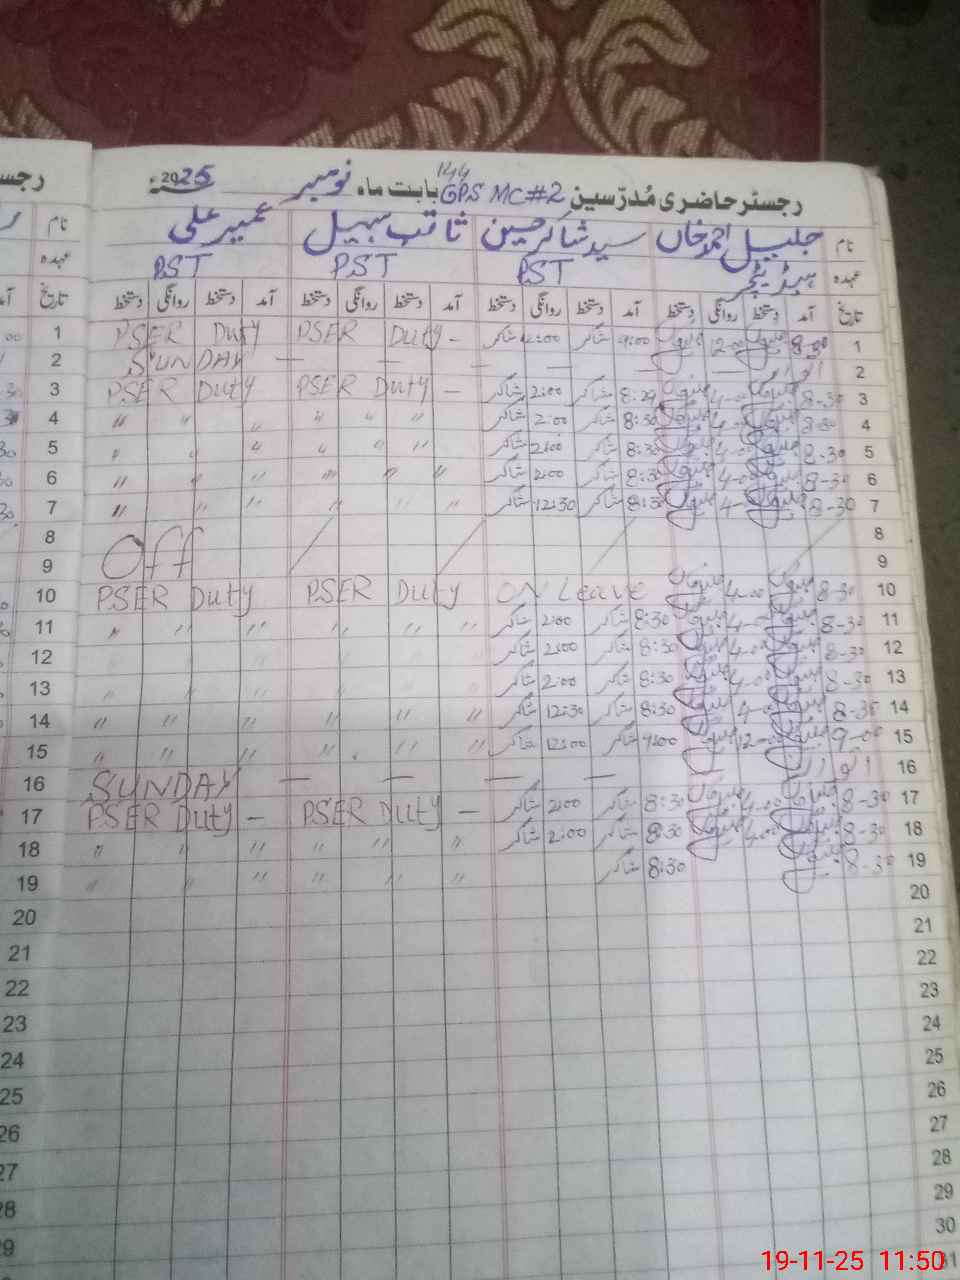 رجسٹر حاضری مُدرّسین GPS MC#2 144 بابت ماہ نومبر 2025ء
نام جلیل احمد خاں سید شاکر حسین ثاقب سہیل عمیر علی نام
عہدہ ہیڈ ٹیچر PST PST PST عہدہ
تاریخ آمد دستخط روانگی دستخط آمد دستخط روانگی دستخط آمد دستخط روانگی دستخط آمد دستخط روانگی دستخط تاریخ
1 8-30 12-00 9:00 شاکر 12:00 شاکر PSER Duty - PSER Duty 1
2 اتوار — — — — — — SUNDAY 2
3 8-30 4-00 8:29 شاکر 2:00 شاکر PSER Duty - PSER Duty 3
4 8-30 4-00 8:30 شاکر 2:00 شاکر " " " " " " 4
5 8-30 4-00 8:30 شاکر 2:00 شاکر " " " " " " 5
6 8-30 4-00 8:30 شاکر 2:00 شاکر " " " " " " 6
7 8-30 4-00 8:30 شاکر 12:30 شاکر " " " " " " 7
8 8
9 Off 9
10 8-30 4-00 ON Leave PSER Duty PSER Duty 10
11 8-30 4-00 8:30 شاکر 2:00 شاکر " " " " " " 11
12 8-30 4-00 8:30 شاکر 2:00 شاکر 12
13 8-30 4-00 8:30 شاکر 2:00 شاکر " " " " " " 13
14 8-30 4-00 8:30 شاکر 12:30 شاکر " " " " " " 14
15 9-00 12-00 9:00 شاکر 12:00 شاکر " " " " " " 15
16 اتوار — — — — — SUNDAY 16
17 8-30 4-00 8:30 شاکر 2:00 شاکر PSER Duty - PSER Duty - 17
18 8-30 4-00 8:30 شاکر 2:00 شاکر " " " " " " 18
19 8-30 8:30 شاکر " " " " " " 19
20 20
21 21
22 22
23 23
24 24
25 25
26 26
27 27
28 28
29 29
30
31
19-11-25 11:50